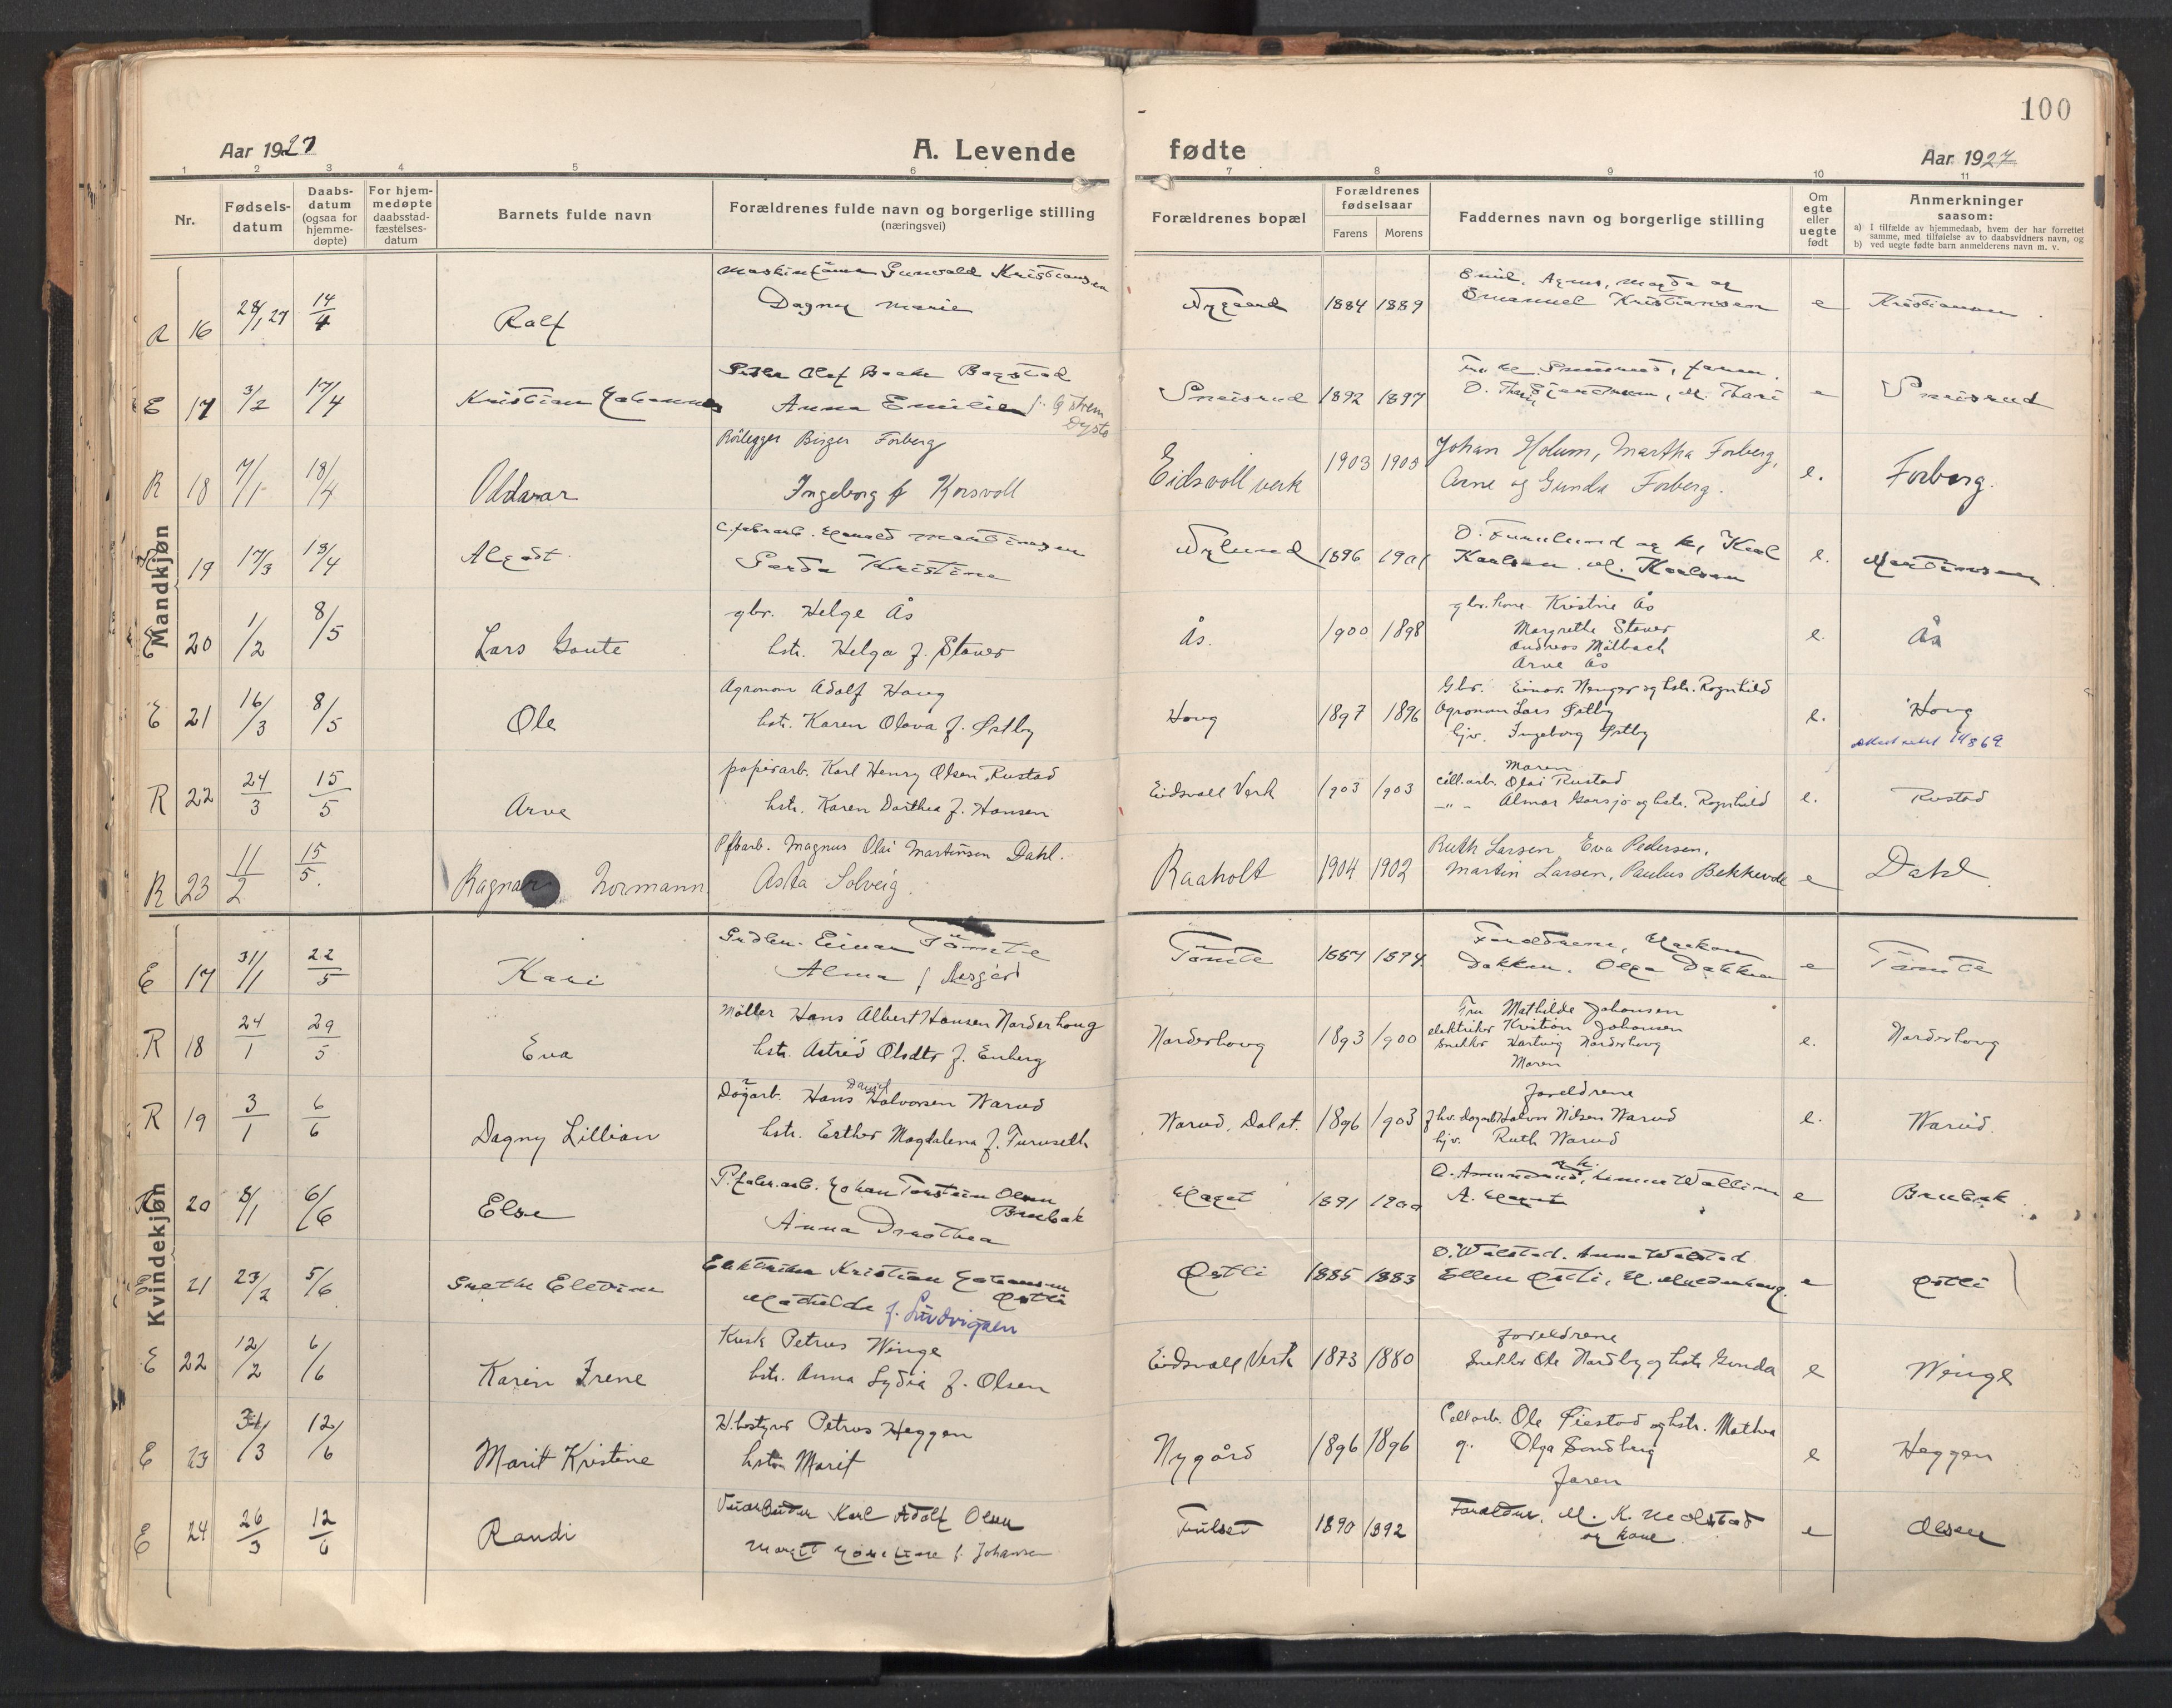 100
Aar 1927
A. Levende
fødte
Aar 1927
1 2 3 4 5 6 7 8 9 10 11
Nr.
Fødsels-
datum
Daabs-
datum
(ogsaa for
hjemme-
døpte)
For hjem-
medøpte
daabsstad-
fæstelses-
datum
Barnets fulde navn
Forældrenes fulde navn og borgerlige stilling
(næringsvei)
Forældrenes bopæl
Forældrenes
fødselsaar
Farens Morens
Faddernes navn og borgerlige stilling
Om
egte
eller
uegte
født
Anmerkninger
saasom:
a) I tilfælde av hjemmedaab, hvem der har forrettet
samme, med tilføielse av to daabsvidners navn, og
b) ved uegte fødte barn anmelderens navn m. v.
Mandkjøn
R 16 28/1 27 14/4 Ralf
Gunvald Kristiansen
Dagny Marie
Nygaard 1884 1889
Emil, Agnes, Magda og
Emanuel Kristiansen
e Kristiansen
E 17 3/2 17/4 Kristian Johannes
Olaf Bagstad
Anna Emilie
Sneisrud 1892 1897
e Sneisrud
R 18 7/1 18/4 Oddvar
Rörlegger Birger Forberg
Ingeborg f Korsvoll
Eidsvoll verk 1903 1903
Johan Holum, Martha Forberg,
Arne og Gunda Forberg.
e. Forberg.
19 17/3 13/4
Martinsen
Gerda Kristine
Nylund 1896 1901
Karl
Karlsen. M. Karlsen
e. Martinsen.
E 20 1/2 8/5 Lars Gaute
gbr. Helge Ås
hstr. Helga f. Staver
Ås. 1900 1898
gbr. kone Kristine Ås
Margrethe Staver
Andreas Mälbach
Arve Ås
e. Ås
E 21 16/3 8/5 Ole
Agronom Adolf Haug
hstr. Karen Olava f. Østby
Haug 1897 1896
Gbr. Einar Henger og hstr. Ragnhild
Agronom Lars Østby
hjv. Ingeborg Østby
e. Haug
R 22 24/3 15/5 Arve
papirarb. Karl Henry Olsen Rustad
hstr. Karen Dorthea f. Hansen
Eidsvall Verk 1903 1903
Moren
cell.arb. Olai Rustad
-"- Almar Garsjø og hstr. Ragnhild
e. Rustad
R 23 11/2 15/5. Ragnar Normann
Magnus Olai Martinsen Dahl.
Asta Solveig.
Raaholt 1904 1902
Ruth Larsen Eva Pedersen,
Martin Larsen, Paulus Bekkevold
e Dahl
Kvindekjøn
E 17 31/1 22/5 Kari
Einar Tömte
Alma f
Tömte 1887 1894
Foreldrene, Haakon
Dakken. Olga Dakken
e Tömte
R 18 24/1 29/5 Eva
Møller Hans Albert Hansen Narderhoug
hstr. Astrid Olsdtr f. Enberg
Narderhoug 1893 1900
Fru Mathilde Johansen
elektriker Kristian Johansen
snekker Hartvig Narderhoug
Moren
e. Narderhoug
R 19 3/1 6/6 Dagny Lillian
David
Dagarb. Hans Halvorsen Narud
hstr. Esther Magdalena f. Turuseth
Narud, Dal st. 1896 1903
foreldrene
fhv. dagarb. Halvor Nilsen Narud
hjv. Ruth Narud
e. Narud.
20 8/1 6/6 Else
P.fabr.arb. Johan Torstein Olsen
Brubak
Anna Drothea
Haget 1891 1900
e Brubak
21 23/2 5/6 Grethe Eldvine
Elektriker Kristian Johansen
Østli
Mathilde f. Ludvigsen
Østli 1885 1883
O. Walstad. Anna Walstad
Ellen Østli,
e Østli
E 22 12/2 6/6 Karin Irene
Kusk Petrus Winge
hstr. Anna Lydia f. Olsen
Eidsvall Verk 1873 1880
foreldrene
snekker Ole Nordby og hstr Gunda
e Winge
E 23 31/3 12/6 Marit Kristine
Petrus Heggen
hstr Marit
Nygård 1896 1896
Cellarb. Ole Øiestad og hstr. Mathea
g. Olga Sandberg
faren
e Heggen
E 24 26/3 12/6 Randi
Karl Adolf Olsen
Margit f. Johansen
Fulset 1890 1892
M. K. Molstad
og kone.
e Olsen